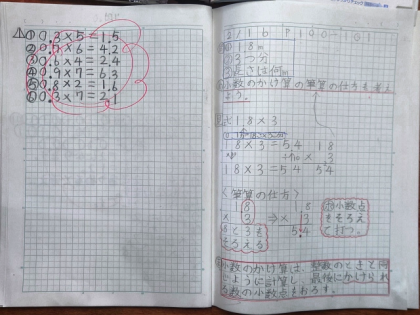 ①0.3×5=1.5
②0.7×6=4.2
③0.6×4=2.4
④0.9×7=6.3
⑤0.8×2=1.6
⑥0.3×7=2.1
2/16 P100~101
18m
3つ分
長さは何m
小数のかけ算の筆算の仕方を考え
よう。
式 1.8×3
18×3=54 18
× 3
1.8×3=5.4 54
〈筆算の仕方〉
1.8 1.8
× 3 ⇒ × 3
5.4
8と3を
そろえる
小数点
をそろえ
て打つ。
小数のかけ算は、整数のときと同
じように計算し、最後にかけられ
る数の小数点をおろす。